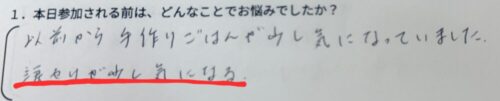 1．本日参加される前は、どんなことでお悩みでしたか？
以前から手作りごはんが少し気になっていました。
涙やけが少し気になる。